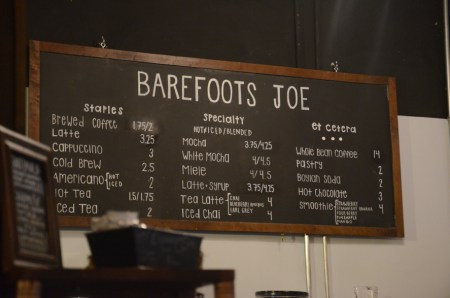 BAREFOOTS JOE
Staples
Brewed Coffee 1.75/2
Latte 3.25
Cappuccino 3
Cold Brew 2.5
Americano HOT ICED 2
Hot Tea 1.5/1.75
Iced Tea 2
Specialty
HOT/ICED/BLENDED
Mocha 3.75/4.25
White Mocha 4/4.5
Miele 4/4.5
Latte+Syrup 3.75/4.25
Tea Latte CHAI 4
EARL GREY
Iced Chai 4
Et Cetera
Whole Bean Coffee 14
Pastry 2
Italian Soda 2
Hot Chocolate 3
Smoothie STRAWBERRY 4
STRAWBERRY BANANA
FOUR BERRY
PINEAPPLE
MANGO